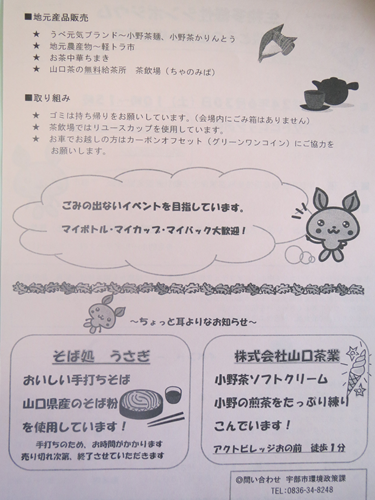 ■地元産品販売
★ うべ元気ブランド～小野茶麺、小野茶かりんとう
★ 地元農産物～軽トラ市
★ お茶中華ちまき
★ 山口茶の無料給茶所 茶飲場（ちゃのみば）
■取り組み
★ ゴミは持ち帰りをお願いしています。（会場内にごみ箱はありません）
★ 茶飲場ではリユースカップを使用しています。
★ お車でお越しの方はカーボンオフセット（グリーンワンコイン）にご協力を
お願いします。
ごみの出ないイベントを目指しています。
マイボトル・マイカップ・マイバック大歓迎！
～ちょっと耳よりなお知らせ～
そば処 うさぎ
おいしい手打ちそば
山口県産のそば粉
を使用しています！
手打ちのため、お時間がかかります
売り切れ次第、終了させていただきます
株式会社山口茶業
小野茶ソフトクリーム
小野の煎茶をたっぷり練り
こんでいます！
アクトビレッジおの前 徒歩１分
◎問い合わせ 宇部市環境政策課
TEL:0836-34-8248